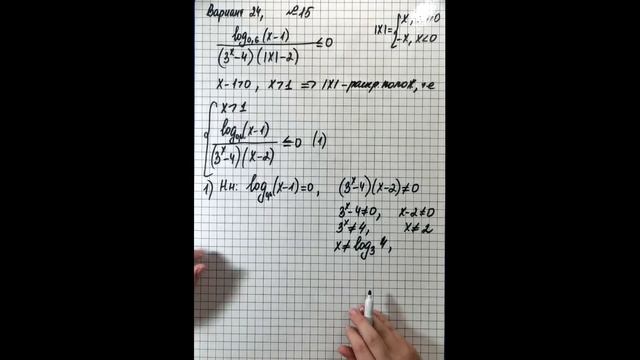 Вариант 24, №15
|x|={x, x>0
-x, x<0
log₀,₆(x-1)
(3ˣ-4)(|x|-2) ≤0
x-1>0, x>1 ⇒ |x|-раскр полож, т.е
{x>1
log (x-1)
(3ˣ-4)(x-2) ≤0 (1)
1) Нн: log (x-1)=0, (3ˣ-4)(x-2)≠0
3ˣ-4≠0, x-2≠0
3ˣ≠4, x≠2
x≠log₃4,